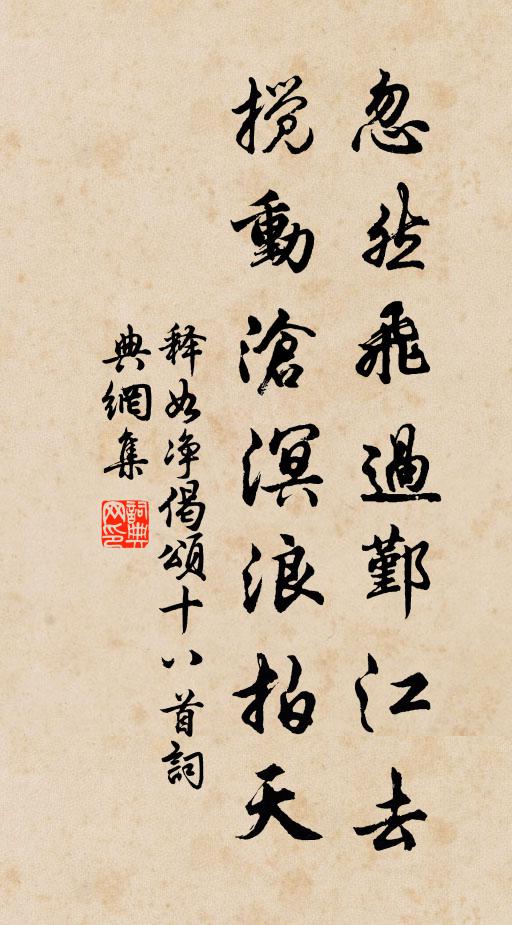 忽然飛過鄞江去
攪動滄溟浪拍天
释如净偈頌十八首詞
典網集
詞典
网印